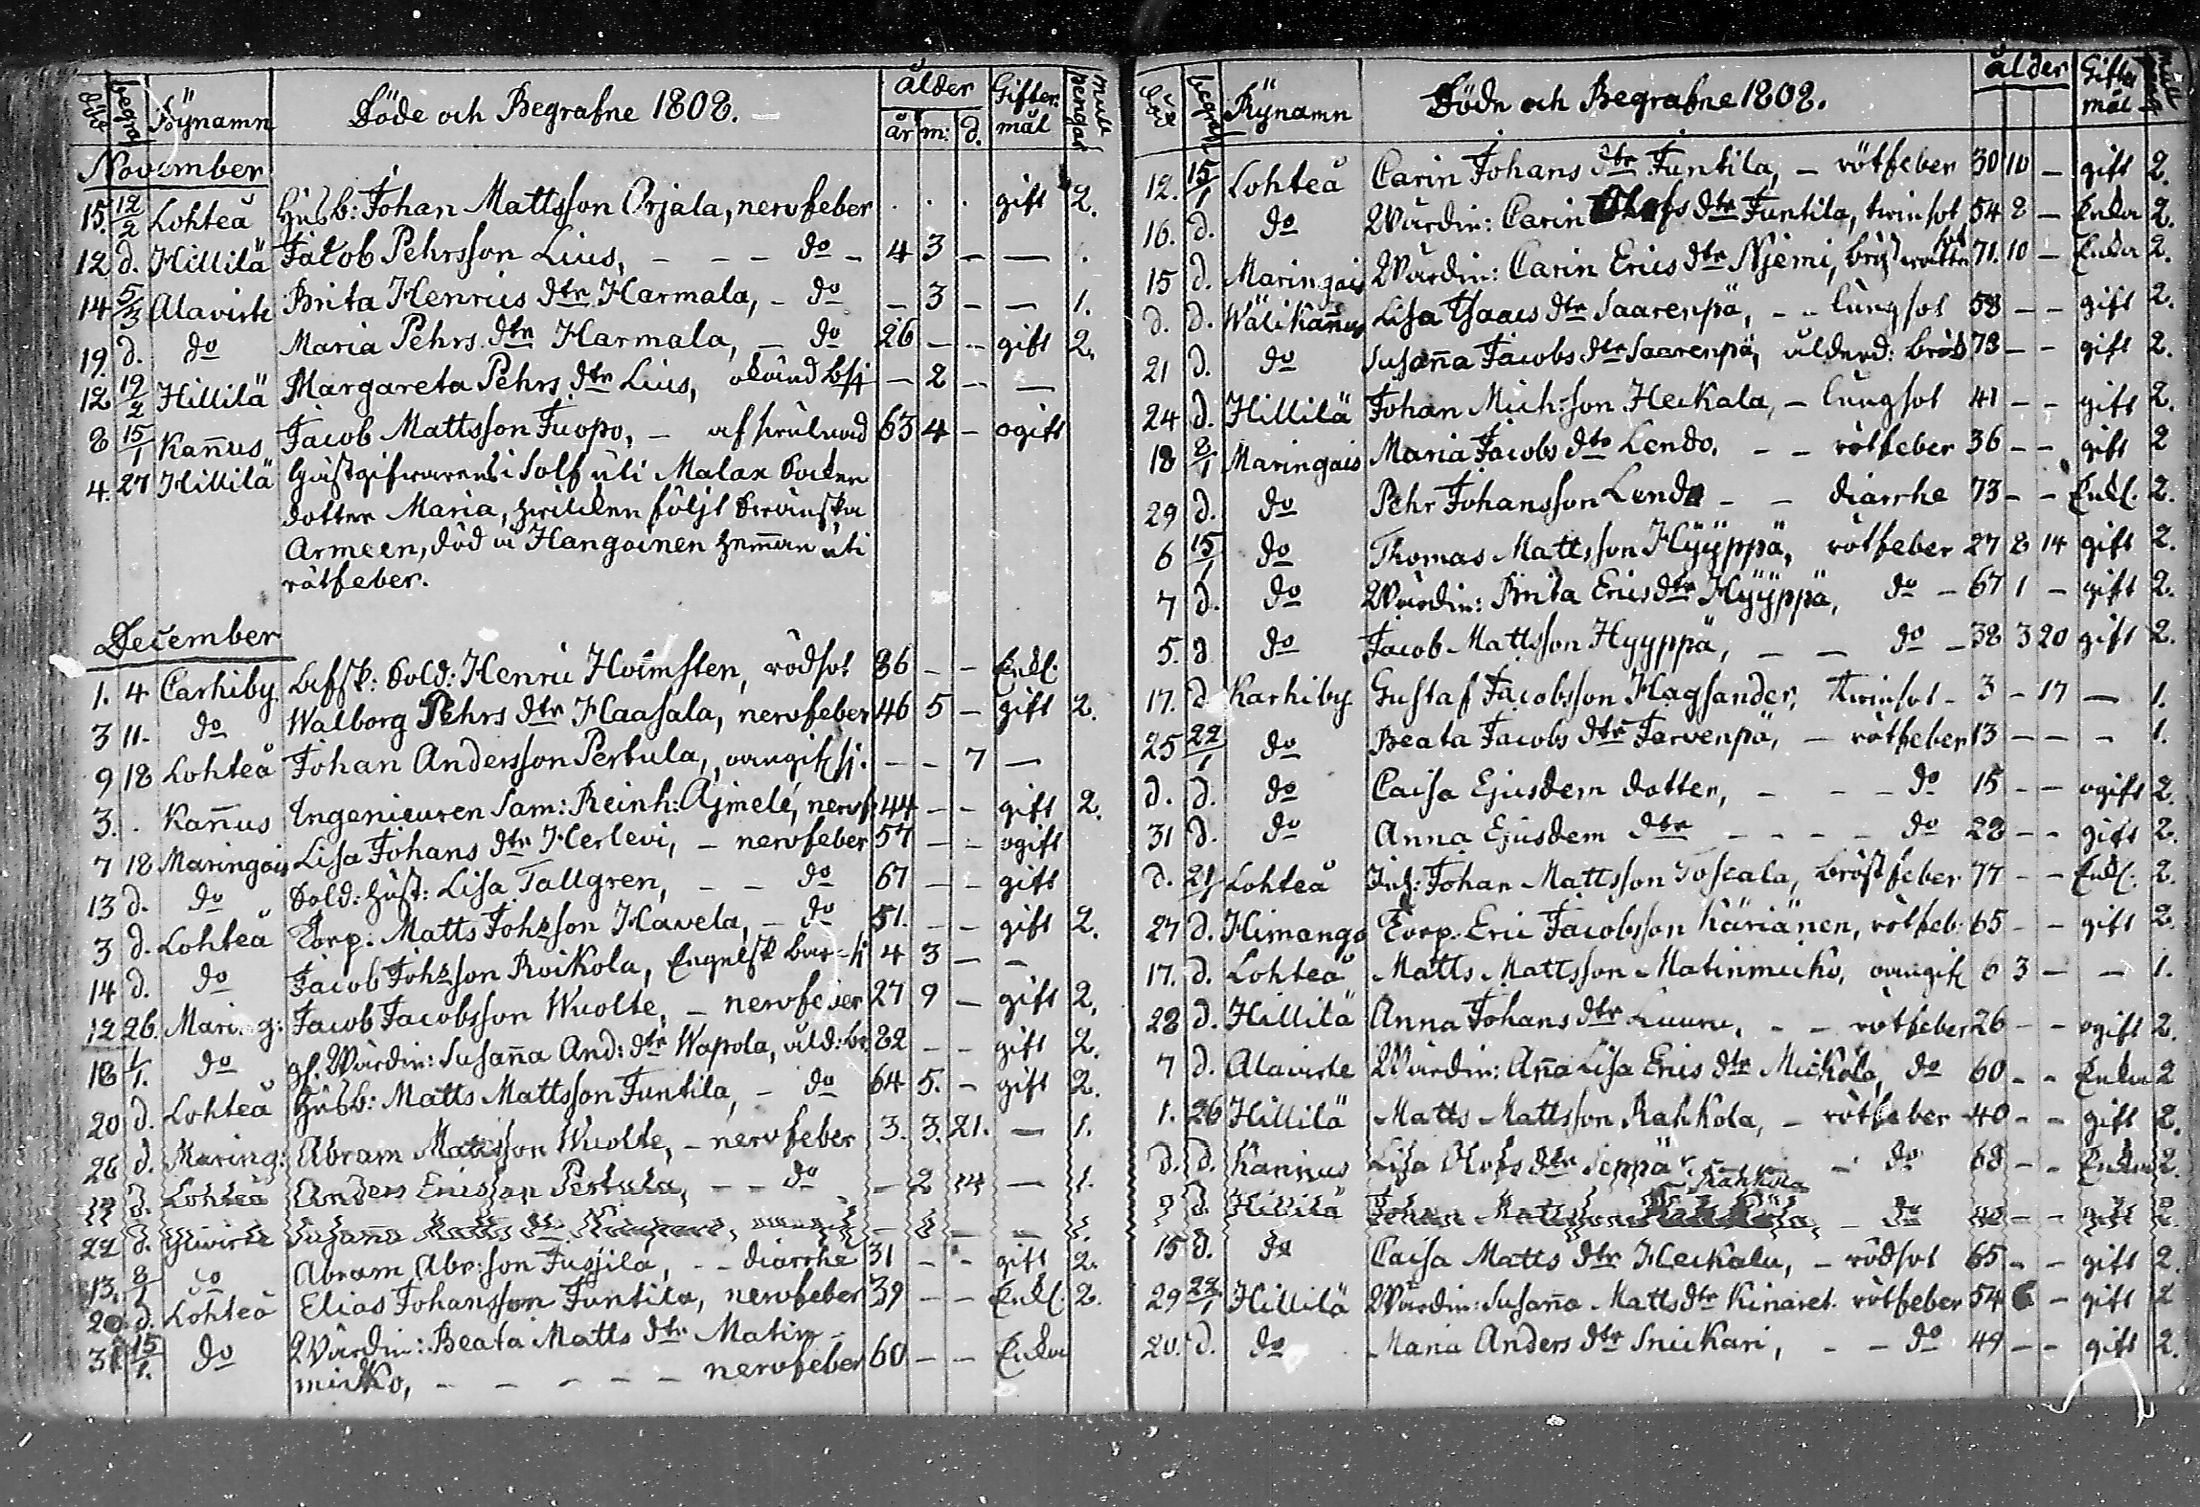 död begraf Bÿnamn Döde och Begrafne 1808. ålder år m: d. Gifter mål mull pengar
November
15. 12/2 Lohteå Husb: Johan Mattsson Orjala, nervfeber . . . gift 2.
12 d. Hillilä Jacob Pehrsson Lius, - - - do - 4 3 - - .
14 5/3 Alaviste Brita Henrics dtr Harmala, - do - 3 - - 1.
19. d. do Maria Pehrs dtr Harmala, - do 26 - - gift 2.
12 19/2 Hillilä Margareta Pehrs dtr Lius, okänd - 2 - -
8 15/1 Kannus Jacob Mattsson Juopo, - af 63 4 - ogift
4. 27 Hillilä Gästgifvarens i Solf uti Malax Socken
dotter Maria, hvilken följt Svänska
Armeen, död å Hangoinen hemman uti
rötfeber.
December
1. 4 Carhiby Afsk: Sold: Henric Holmsten, rödsot 86 - - Enkl.
3 11. do Walborg Pehrs dtr Haasala, nervfeber 46 5 - gift 2.
9 18 Lohteå Johan Andersson Pertula, - - 7 -
3. . Kannus Ingenieuren Sam: Reinh: Ajmelé, nervf 44 - - gift 2.
7 18 Maringais Lisa Johans dtr Herlevi, - nervfeber 57 - - ogift
13 d. do Sold: Hust: Lisa Tallgren, - - do 67 - - gift
3 d. Lohteå Torp: Matts Johsson Havela, - do 51. - - gift 2.
14 d. do Jacob Johsson Roikola, Engelsk 4 3 - -
12 26. Maring: Jacob Jacobsson Wuolte, - nervfeber 27 9 - gift 2.
18 1/1. do gl. Wärdin: Susanna And: dtr Wapola, åld: br 82 - - gift 2.
20 d. Lohteå Husb: Matts Mattsson Juntila, - do 64 5. - gift 2.
26 d. Maring: Abram Mattsson Wuolte, - nervfeber 3. 3. 21. - 1.
d. Lohteå Anders Ericsson Pertula, - - do - 2 14 - 1.
22 d. Susanna Matts dtr
13. 8/1 do Abram Abr:son Jusjila, - - diarrhé 31 - - gift 2.
20 d. Lohteå Elias Johansson Juntila, nervfeber 39 - - Enkl. 2.
31 15/1. do Wärdin: Beata Matts dtr Matin-
micko, - - - - - nervfeber 60 - - Enka
död begraf Bÿnamn Döde och Begrafne 1808. ålder Gifter mål
12. 15/1 Lohteå Carin Johans dtr Juntila, - rötfeber 30 10 - gift 2.
16. d. do Wärdin: Carin Olofs dtr Juntila, tvinsot 54 8 - Enka 2.
15 d. Maringais Wärdin: Carin Erics dtr Njemi, 71. 10 - Enka 2.
d. d. Wälikannus Lisa Isaacs dtr Saarenpä, - - lungsot 58 - - gift 2.
21 d. do Susanna Jacobs dtr Saarenpä, ålderd: bräck 78 - - gift 2.
24 d. Hillilä Johan Mich:son Heikala, - lungsot 41 - - gift 2.
18 8/1 Maringais Maria Jacobs dtr Lendo. - - rötfeber 36 - - gift 2
29 d. do Pehr Johansson Lendo - - diarrhe 73 - - Enkl. 2.
6 15/1 do Thomas Mattsson Hÿÿppä, rötfeber 27 8 14 gift 2.
7 d. do Wärdin: Brita Erics dtr Hÿÿppä, do - 67 1 - gift 2.
5. d do Jacob Mattsson Hyyppä, - - do - 38 3 20 gift 2.
17. d Karhiby Gustaf Jacobsson Hagsander, tvinsot - 3 - 17 - 1.
25 22/1 do Beata Jacobs dtr Jarvenpä, - rötfeber 13 - - - 1.
d. d. do Caisa Ejusdem dotter, - - - do 15 - - ogift 2.
31 d. do Anna Ejusdem dtr - - - - do 28 - - gift 2.
d. 21 Lohteå Inh: Johan Mattsson Toscala, bröstfeber 77 - - Enkl: 2.
27 d. Himango Torp. Eric Jacobsson Käriänen, rötfeb: 65 - - gift 2.
17. d. Lohteå Matts Mattsson Matinmicko, 6 3 - - 1.
28 d. Hillilä Anna Johans dtr Luuru, - - rötfeber 26 - - ogift 2.
7 d. Alaviste Wärdin: Anna Lisa Erics dtr Mickola, do 60 - - Enka 2
1. 26 Hillilä Matts Mattsson Rahkola, - rötfeber 40 - - gift 2.
d. d. Kannus Lisa Olofs dtr Seppä - do 68 - - Enka 2.
d. Hillilä Johan Mattsson Rahkola - do 40 - - gift 2.
15 d. do Caisa Matts dtr Heikala, - rödsot 65 - - gift 2.
29 22/1 Hillilä Wärdin: Susanna Matts dtr Kinaret. rötfeber 54 6 - gift 2
20. d. do Maria Anders dtr Snickari, - - do 49 - - gift 2.